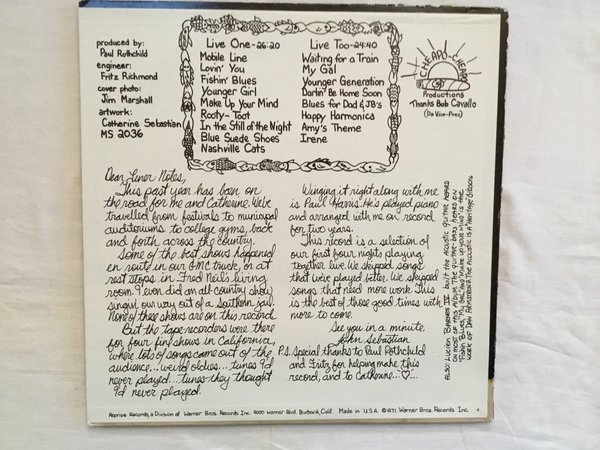 produced by:
Paul Rothchild
engineer:
Fritz Richmond
cover photo:
Jim Marshall
artwork:
Catherine Sebastian
MS 2036
Live One-26:20
Mobile Line
Lovin' You
Fishin' Blues
Younger Girl
Make Up Your Mind
Rooty-Toot
In the Still of the Night
Blue Suede Shoes
Nashville Cats
Live Too-24:40
Waiting for a Train
My Gal
Younger Generation
Darlin' Be Home Soon
Blues for Dad & JB's
Happy Harmonica
Amy's Theme
Irene
CHEAPO-CHEAPO
Productions
Thanks Bob Cavallo
(Da Vice-Prez)
Dear Liner Notes,
This past year has been on
the road for me and Catherine. We've
travelled from festivals to municipal
auditoriums to college gyms, back
and forth across the country.
Some of the best shows happened
en route in our GMC truck, or at
rest stops in Fred Neil's living
room. I even did an all-country show
singin' our way out of a Southern jail.
None of these shows are on this record.
But the tape recorders were there
for four fine shows in California,
where lots of songs came out of the
audience... weird oldies... tunes I'd
never played... tunes they thought
I'd never played.
Winging it right along with me
is Paul Harris. He's played piano
and arranged with me on record
for two years.
This record is a selection of
our first four nights playing
together live. We skipped songs
that we've played better. We skipped
songs that need more work. This
is the best of those good times with
more to come.
See you in a minute,
John Sebastian
P.S. Special thanks to Paul Rothchild
and Fritz for helping make this
record, and to Catherine...♡...
ALSO: Lucien Barnes IV built the acoustic guitar heard
on most of this album. The guitar bass heard on
"Fishin' Blues," "My Gal" and "Make Up Your Mind" is the
work of Dan Armstrong. The acoustic is a Heritage Gibson.
Reprise Records, a Division of Warner Bros. Records Inc. 4000 Warner Blvd. Burbank, Calif. Made in U.S.A. ©1971 Warner Bros. Records Inc.